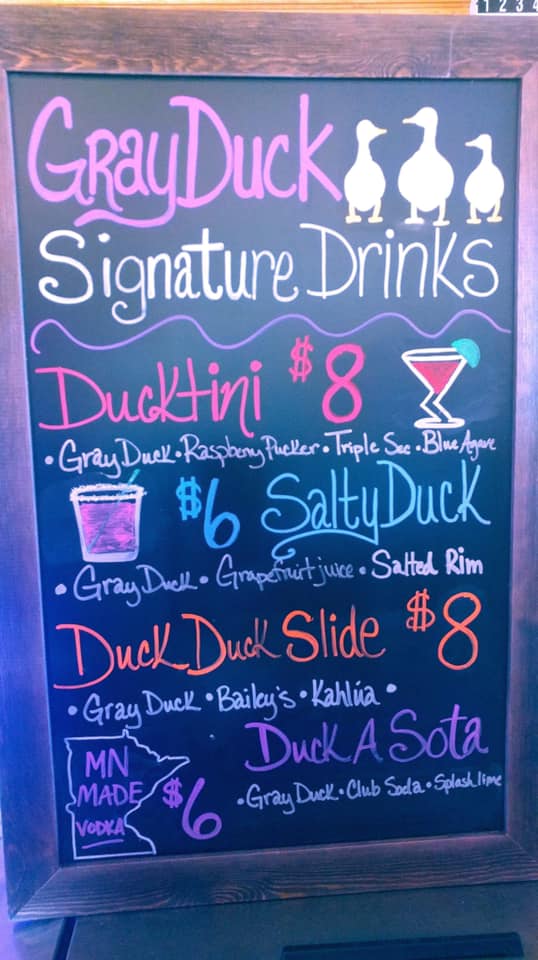 1 2 3 4
GrayDuck
Signature Drinks
Ducktini $8
• Gray Duck • Raspberry Pucker • Triple Sec • Blue Agave
$6 Salty Duck
• Gray Duck • Grapefruit juice • Salted Rim
Duck Duck Slide $8
• Gray Duck • Bailey's • Kahlúa •
Duck A Sota
MN
MADE
VODKA
$6
• Gray Duck • Club Soda • Splash lime